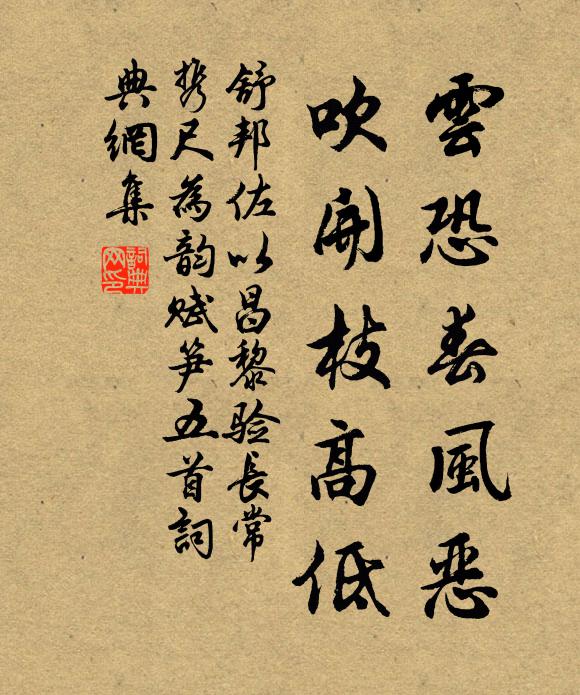 雲恐春風惡
吹開枝高低
舒邦佐以昌黎验長常
携尺為韵赋笋五首詞
典網集
詞典网印